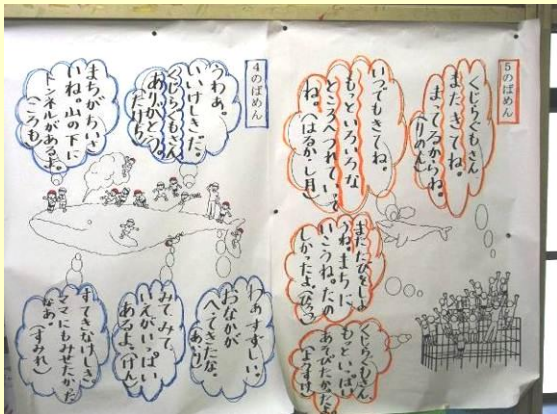 5のばめん
くじらぐもさん
またきてね。
まってるからね。
いつでもきてね。
もっといろいろな
ところへつれていって
ね。(はるか・し月)
またたびをしよ
うね。まちに
いこうね。たの
しかったよ。(ひろ)
くじらぐもさん、
もっといっぱい
あそびたかったよ
(ようすけ)
4のばめん
うわあ。
いいけしきだ。
くじらぐもさん
ありがとう。
(たける)
まちがちいさ
いね。山の下に
トンネルがあるよ。
(ころも)
わあすずしい。
おなかが
へってきたな。
(あいり)
みて、みて、
いえがいっぱい
あるよ。(けん)
すてきなけしき
ママにもみせたかった
なあ。
(すみれ)